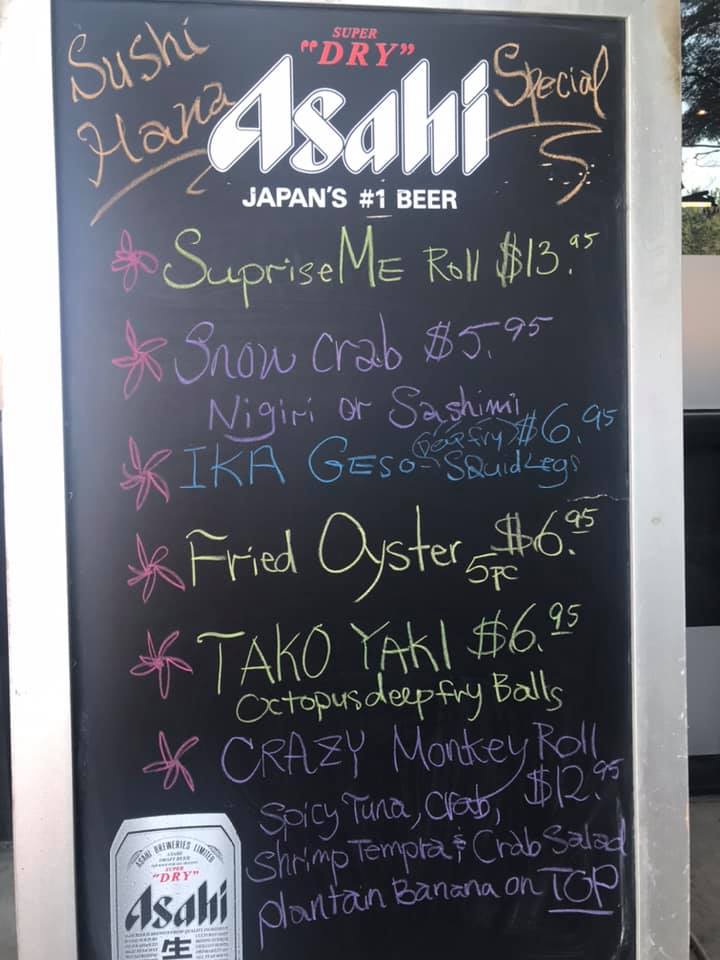 Sushi Hana
Special
SUPER
"DRY"
Asahi
JAPAN'S #1 BEER
Suprise ME Roll $13.95
Snow Crab $5.95
Nigiri or Sashimi
IKA GESO - (Deep fry) $6.95
Squid Legs
Fried Oyster 5pc $6.95
TAKO YAKI $6.95
Octopus deep fry Balls
CRAZY Monkey Roll
$12.95
Spicy Tuna, Crab,
Shrimp Tempra & Crab Salad
plantain Banana on TOP
ASAHI BREWERIES LIMITED
SUPER
"DRY"
Asahi
生